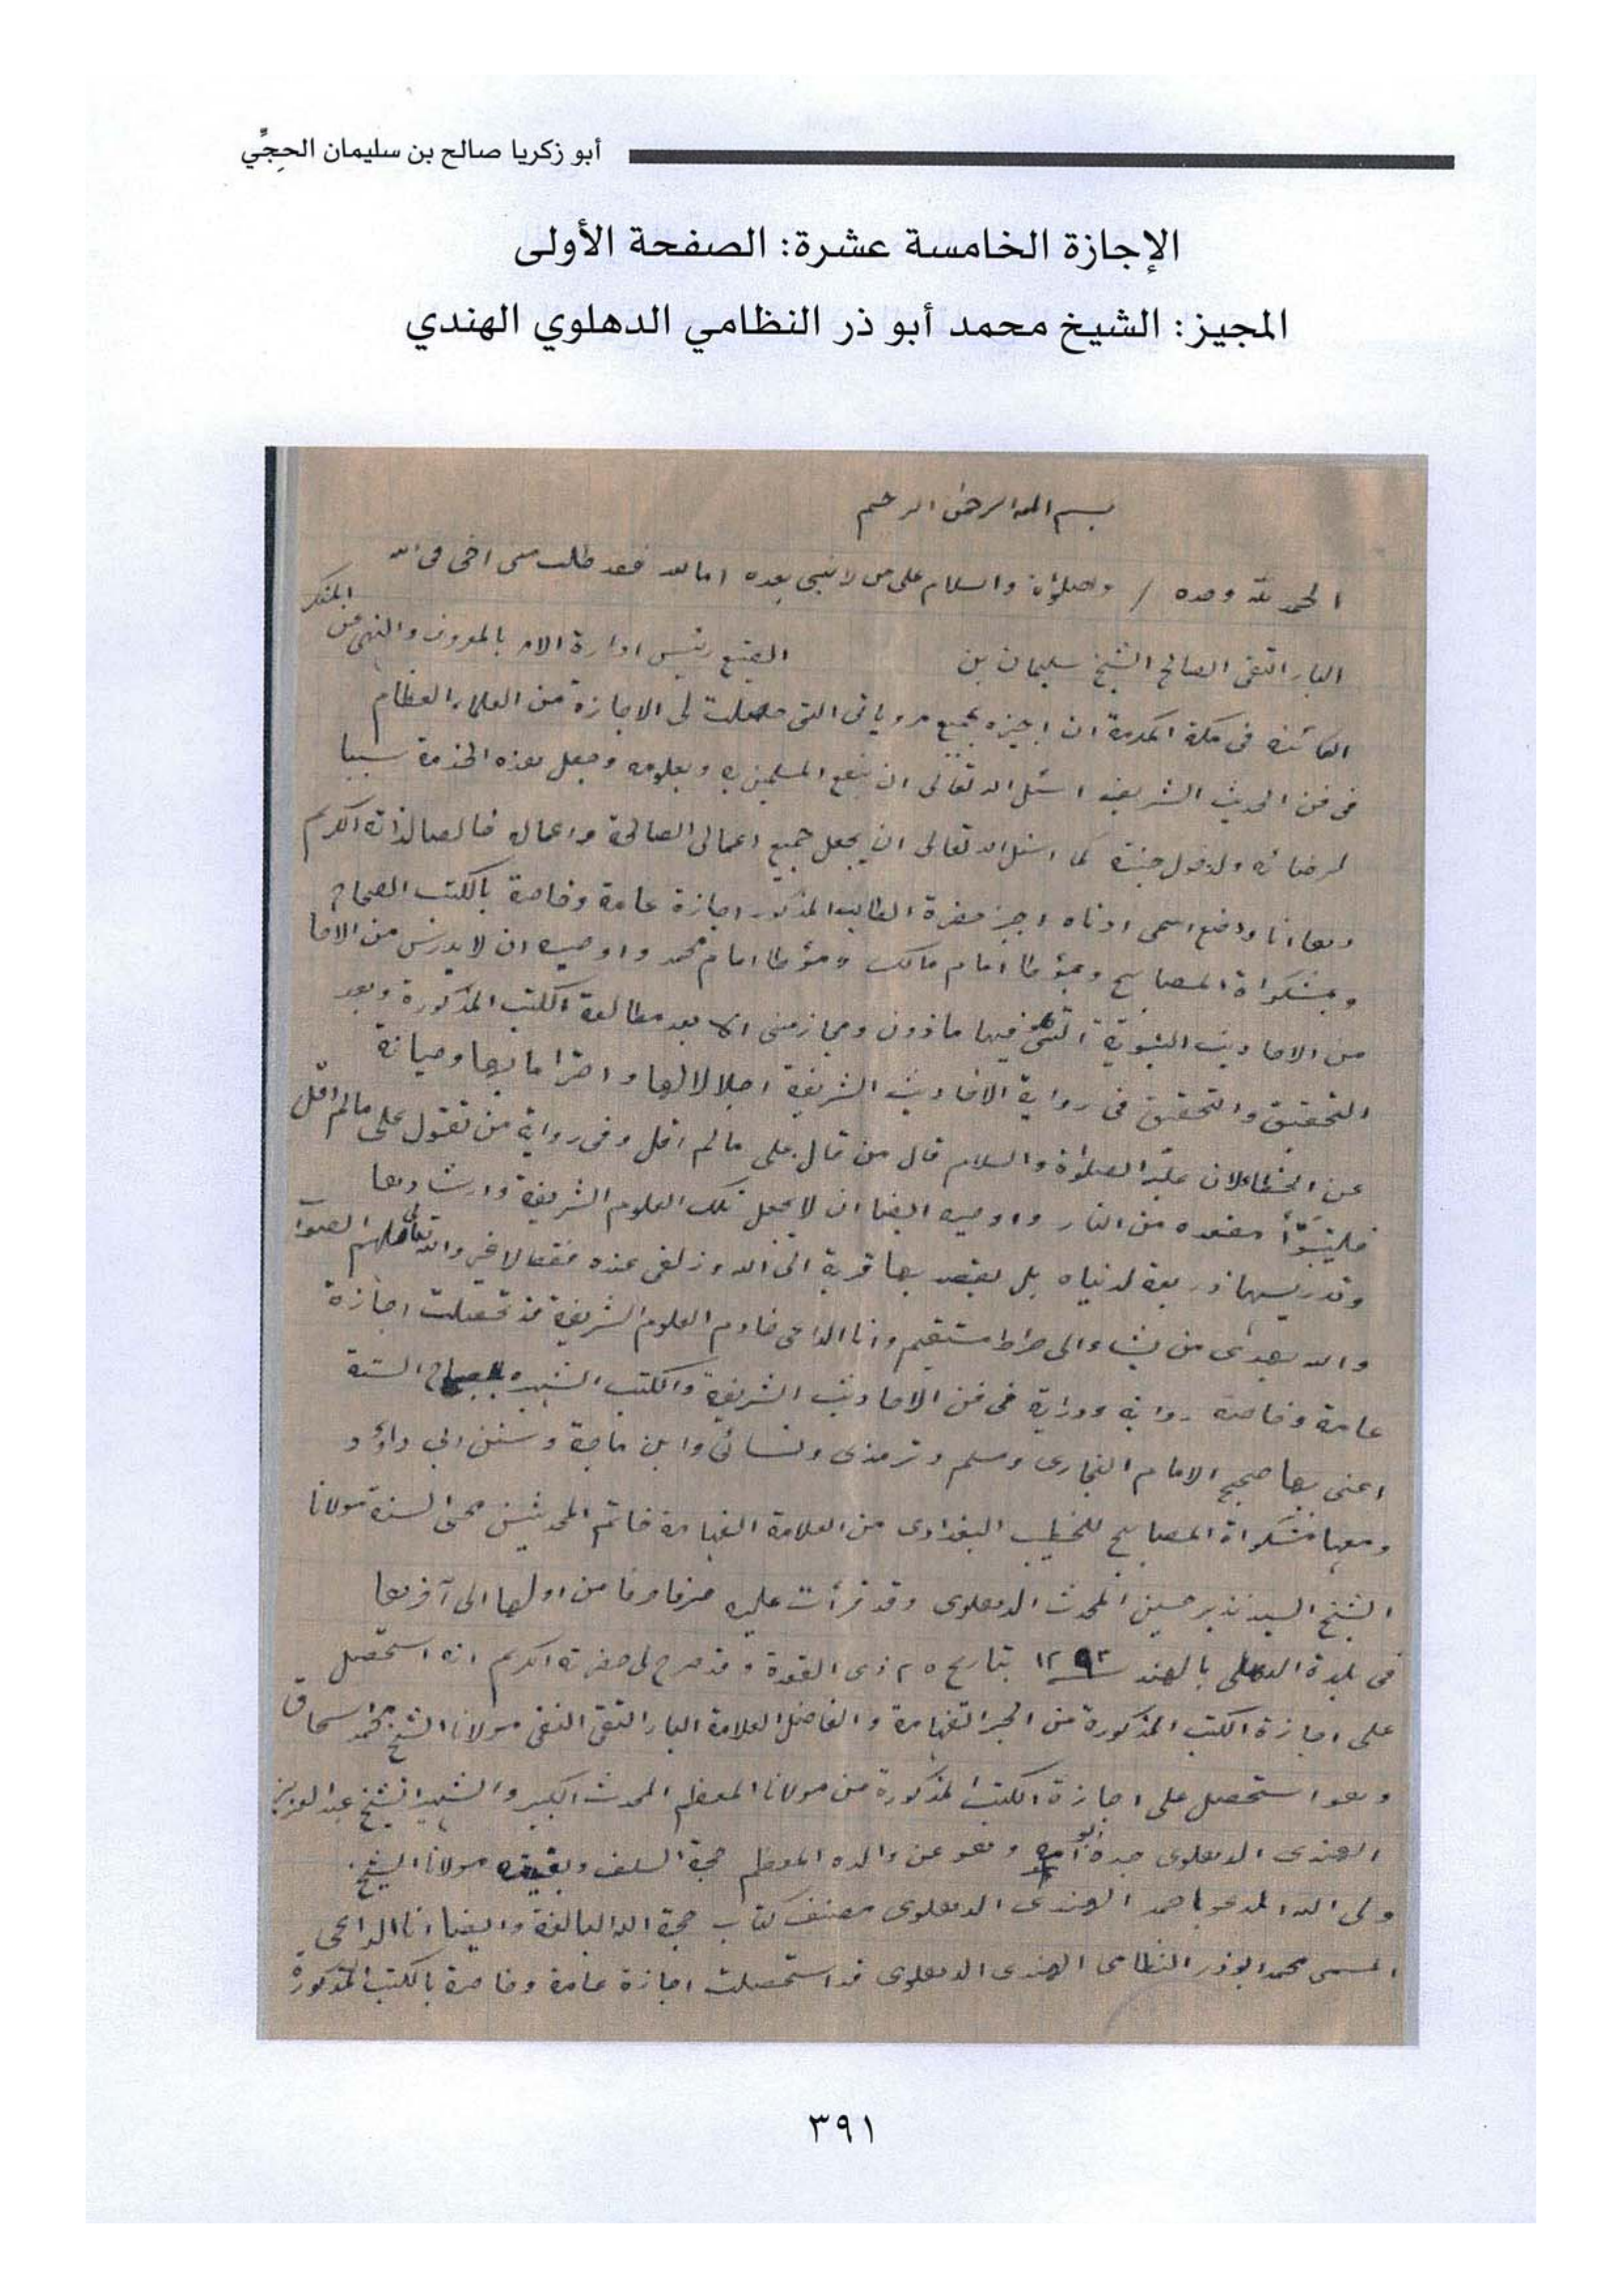 أبو زكريا صالح بن سليمان الحِجِّي
الإجازة الخامسة عشرة: الصفحة الأولى
المجيز: الشيخ محمد أبو ذر النظامي الدهلوي الهندي
بسم الله الرحمن الرحيم
الحمد لله وحده / والصلوٰة والسلام على من لا نبي بعده اما بعد فقد طلب منى اخى فى الله
البار التقى الصالح الشيخ سليمان بن الصنيع رئيس ادارة الامر بالمعروف والنهى عن المنكر
الكائنة فى مكة المكرمة ان اجيزه بجميع مروياتى التى حصلت لى الاجازة من العلماء العظام
فى فن الحديث الشريف اسئل الله تعالى ان ينفع المسلمين به وبعلومه وجعل هذه الخدمة سببا
لرضائه ولدخول جنته كما اسئل الله تعالى ان يجعل جميع اعمالى الصالحة واعماله خالصا لذاته الكريم
وها انا واضع اسمى ادناه اجيز حضرة الطالب المذكور اجازة عامة وخاصة بالكتب الصحاح
وبمشكواة المصابيح وبمؤطا امام مالك ومؤطا امام محمد واوصيه ان لا يدرس من
من الاحاديث النبوية التى هو فيها ماذون ومجاز منى الا بعد مطالعة الكتب المذكورة وبعد
التحقيق والتحقيق فى رواية الاحاديث الشريفة اجلالا لها واحتراما بها وصيانة
عن الخطا لان عليه الصلوٰة والسلام قال من قال على مالم اقل وفى رواية من تقول على مالم اقل
فليتبوّأ مقعده من النار واوصيه ايضا ان لا يجعل تلك العلوم الشريفة وارشادها
وتدريسها ذريعة لدنياه بل يقصد بها قربة الى الله وزلفى عنده فقط لا غير والله تعالى
والله يهدى من يشاء الى صراط مستقيم وانا الداعى خادم العلوم الشريفة قد تحصلت اجازة
عامة وخاصة رواية ودراية فى فن الاحاديث الشريفة والكتب الشهيره الستة
اعنى بها صحيح الامام البخارى ومسلم وترمذى ونسائى وابن ماجة وسنن ابى داؤد
ومعها مشكواة المصابيح للخطيب البغدادى من العلامة الفهامة خاتم المحدثين محى السنة مولانا
الشيخ السيد نذير حسين المحدث الدهلوى وقد قرأت عليه حرفا حرفا من اولها الى آخرها
فى بلدة الدهلى بالهند ١٢٩٣ بتاريخ ٢٥ ذى القعدة وقد صرح لى حضرته الكريم انه استحصل
على اجازة الكتب المذكورة من الحبر الفهامة والفاضل العلامة البار التقى النقى مولانا الشيخ محمد اسحاق
وهو استحصل على اجازة الكتب المذكورة من مولانا المعظم المحدث الكبير والشهير الشيخ عبد العزيز
الهندى الدهلوى جده ابو امه وهو عن والده المعظم حجة السلف وبقيته مولانا الشيخ
ولى الله المدعو باحمد الهندى الدهلوى مصنف كتاب حجة الله البالغة وايضا انا الداعى
المسمى محمد ابوذر النظامى الهندى الدهلوى قد استحصلت اجازة عامة وخاصة بالكتب المذكورة
٣٩١